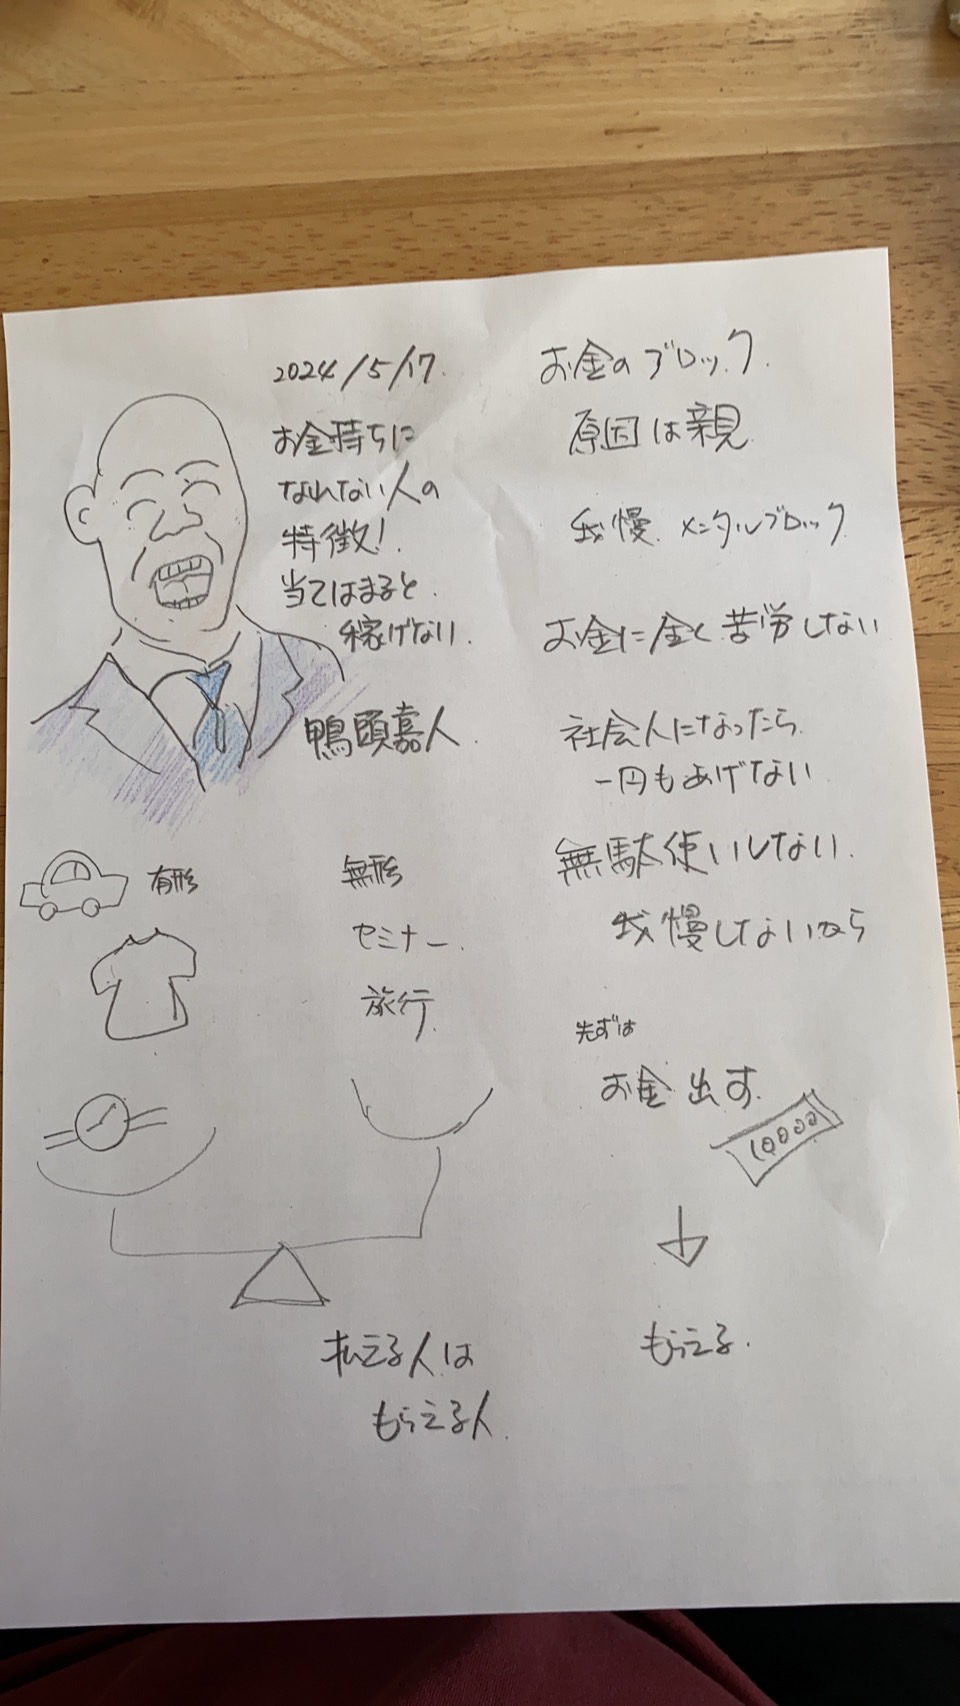 2024/5/17.
お金持ちに
なれない人の
特徴!
当てはまると
稼げない.
鴨頭嘉人.
有形
無形
セミナー.
旅行.
払える人は
もらえる人.
お金のブロック.
原因は親
我慢 メンタルブロック
お金に全く苦労しない
社会人になったら
一円もあげない
無駄使いしない.
我慢しないから
先ずは
お金出す.
10000
もらえる.